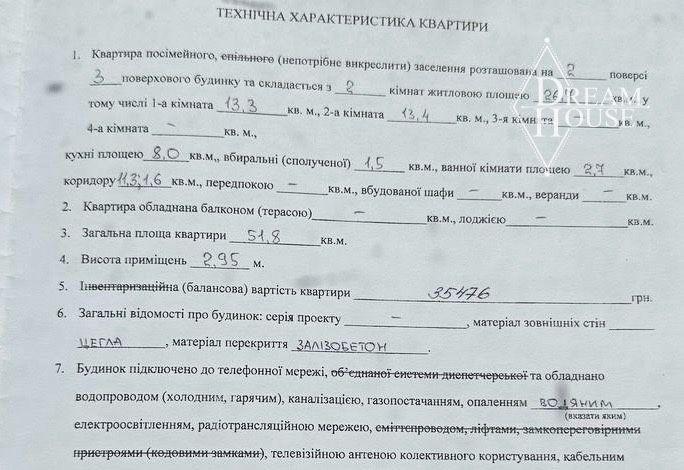 ТЕХНІЧНА ХАРАКТЕРИСТИКА КВАРТИРИ
DREAM HOUSE
1. Квартира посімейного, спільного (непотрібне викреслити) заселення розташована на 2 поверсі
3 поверхового будинку та складається з 2 кімнат житловою площею кв.м, у
тому числі 1-а кімната 13,3 кв. м., 2-а кімната 13,4 кв. м., 3-я кімната кв. м.,
4-а кімната – кв. м.,
кухні площею 8,0 кв.м., вбиральні (сполученої) 1,5 кв.м., ванної кімнати площею 2,7 кв.м.,
коридору 11,3; 1,6 кв.м., передпокою – кв.м., вбудованої шафи – кв.м., веранди – кв.м.
2. Квартира обладнана балконом (терасою) – кв.м., лоджією – кв.м.
3. Загальна площа квартири 51,8 кв.м.
4. Висота приміщень 2,95 м.
5. Інвентаризаційна (балансова) вартість квартири 35476 грн.
6. Загальні відомості про будинок: серія проекту –, матеріал зовнішніх стін
ЦЕГЛА, матеріал перекриття ЗАЛІЗОБЕТОН.
7. Будинок підключено до телефонної мережі, об'єднаної системи диспетчерської та обладнано
водопроводом (холодним, гарячим), каналізацією, газопостачанням, опаленням ВОДЯНИМ,
(вказати яким)
електроосвітленням, радіотрансляційною мережею, сміттєпроводом, ліфтами, замкопереговірними
пристроями (кодовими замками), телевізійною антеною колективного користування, кабельним